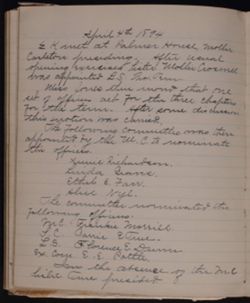 April 4th 1894
E K met at Palmer House, Mollie
Carleton presiding. After usual
opening exercises Sister Mollie Croswell
was appointed L.S. Pro. Tem.
Miss Jones then moved that one
set of officers act for the three chapters
for the term. After some discussion
this motion was carried.
The following committee was then
appointed by the M.C. to nominate
the officers.
Minnie Richardson.
Linda
Ethel E. Farr.
Alice
The committee nominated the
following officers:
M.C. Frankie Morrill.
V.C. Carrie E. True.
L.S. Florence E. Dunn
Ex. Com. E. E.
In the absence of the M.C.
Sister True presided